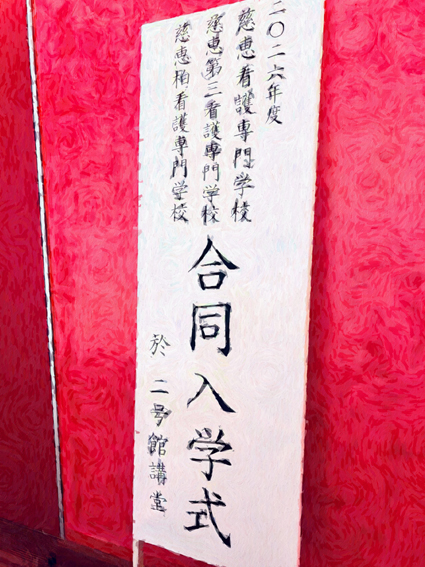 二〇二六年度
慈恵看護専門学校
慈恵第三看護専門学校
慈恵柏看護専門学校
合同入学式
於 二号館講堂